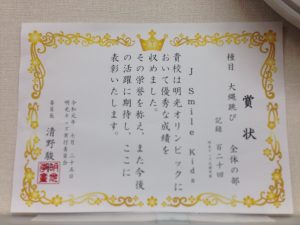 賞状
種目 大縄跳び 全体の部
記録 百二十回
J Smile Kids
貴校は明光オリンピックに
おいて優秀な成績を
収めました。
その栄誉を称え、また今後
の活躍に期待し、ここに
表彰いたします。
令和元年 七月 二十五日
明光キッズ実行委員会
委員長 清野駿